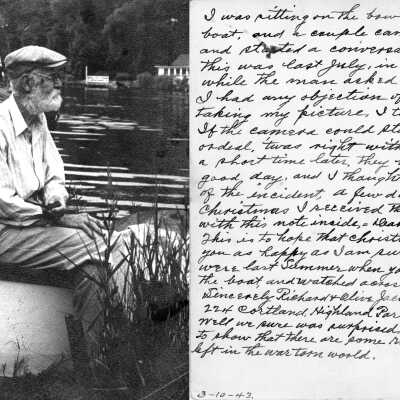 I was sitting on the bow
boat, and a couple cam
and started a conversa
this was last July, in
while the man asked
I had any objection of
taking my picture, I t
If the camera could st
ordeal, twas right with
a short time later, they
good, day, and I though
of the incident, a few d
Christmas I received th
with this note inside, Dear
This is to hope that Christ
you as happy as I am su
were last Summer when yo
the boat and watched acros
Sincerely Richard & Olive
224 Cortland, Highland Par
Well we sure was surprised
to show that there are some
left in the war torn world.
3-10-43.